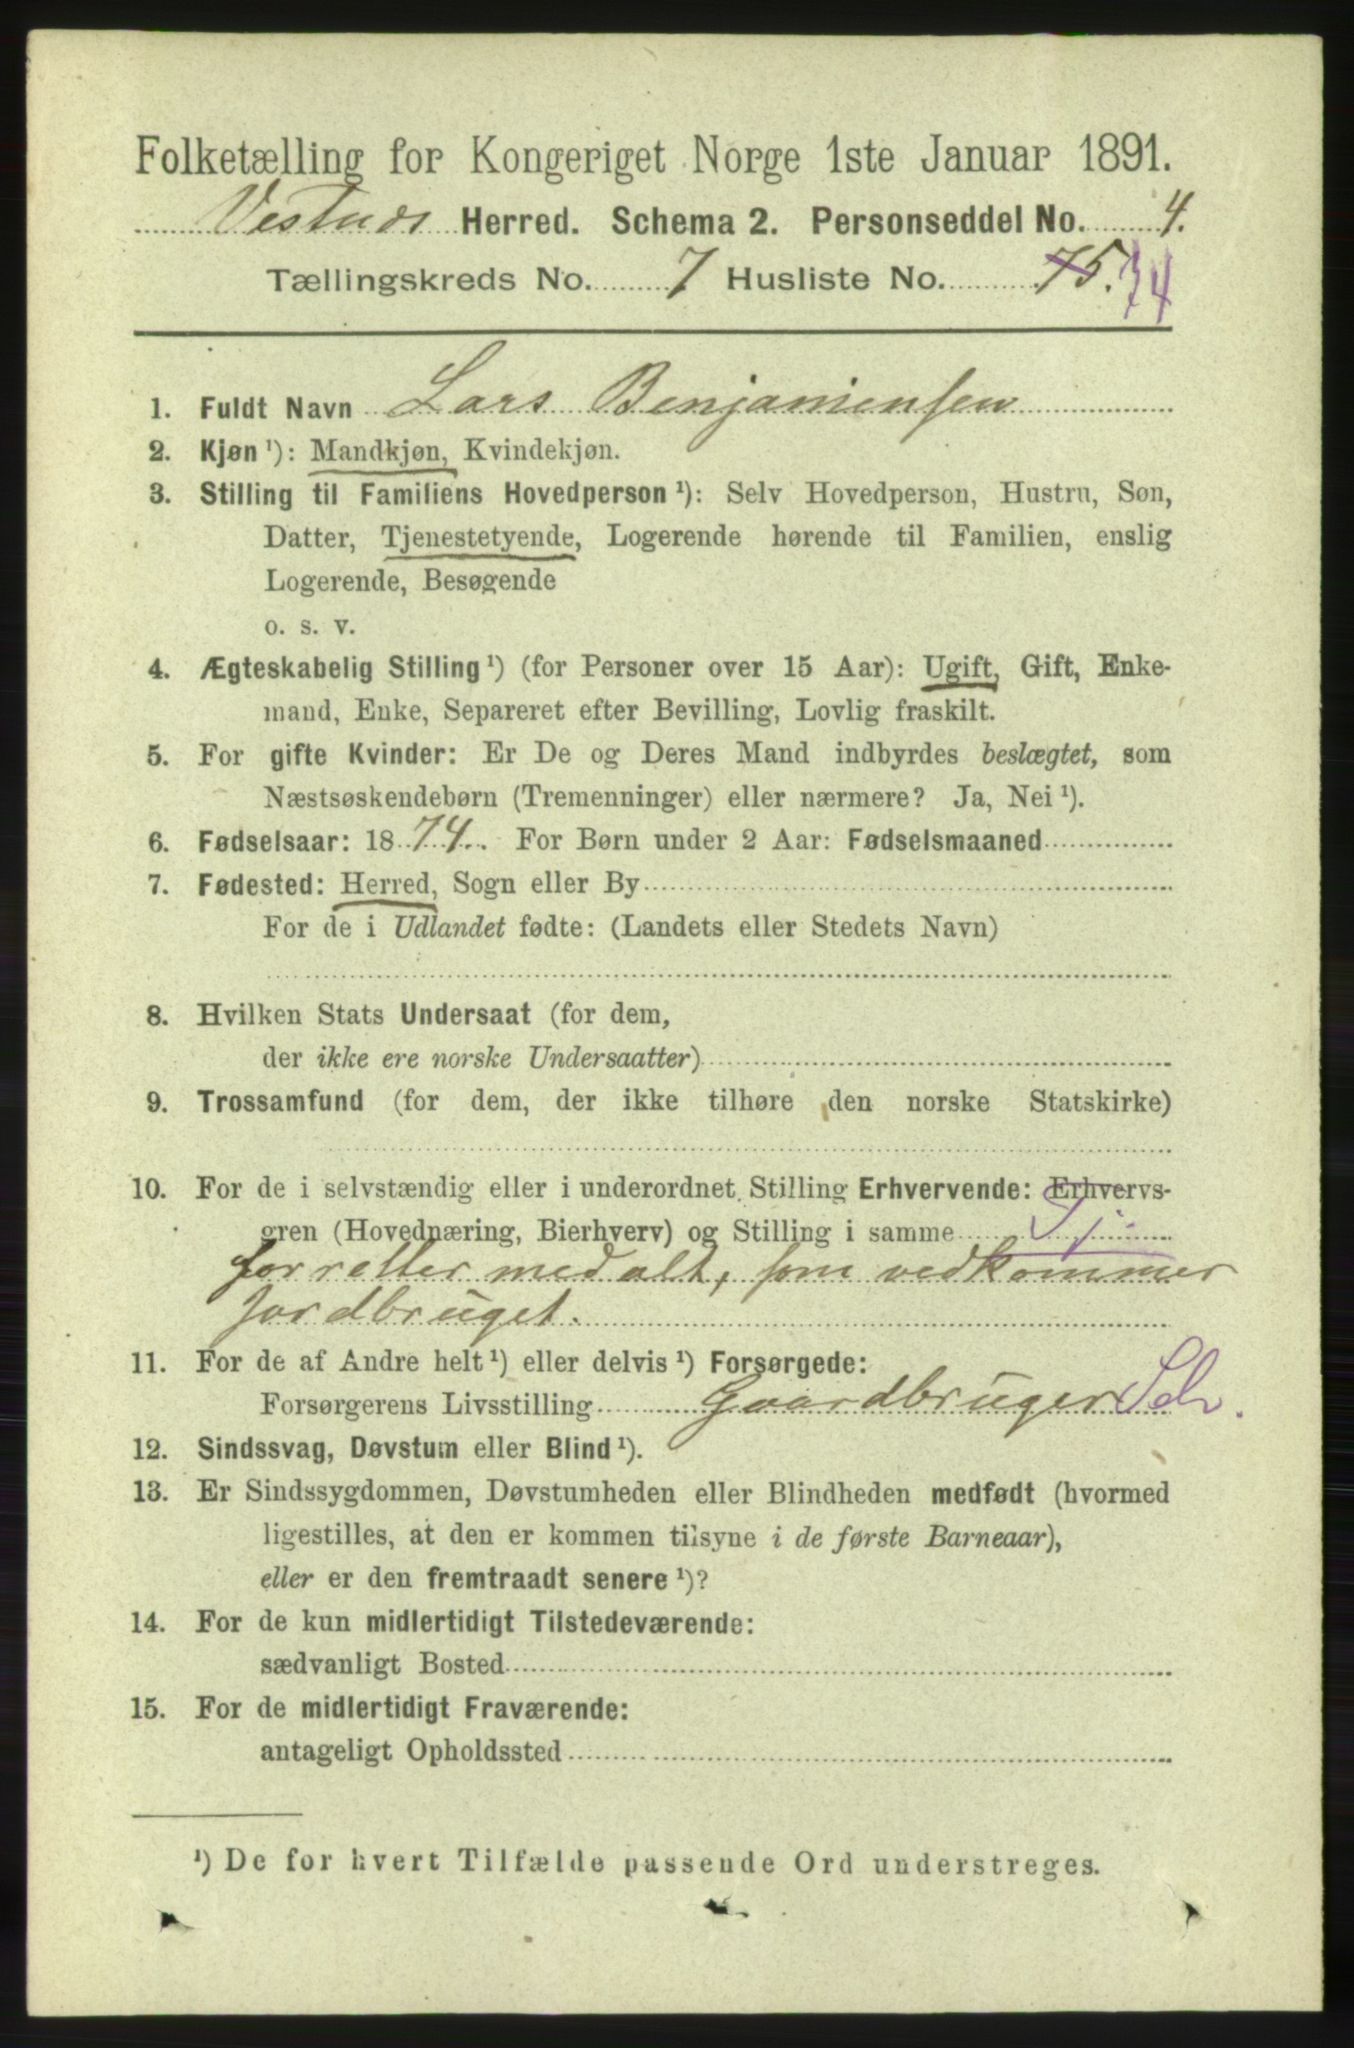 Folketælling for Kongeriget Norge 1ste Januar 1891.
Vestnæs Herred. Schema 2. Personseddel No. 4.
Tællingskreds No. 7 Husliste No. 75. 74
1. Fuldt Navn Lars Benjamensen
2. Kjøn ¹): Mandkjøn, Kvindekjøn.
3. Stilling til Familiens Hovedperson ¹): Selv Hovedperson, Hustru, Søn,
Datter, Tjenestetyende, Logerende hørende til Familien, enslig
Logerende, Besøgende
o. s. v.
4. Ægteskabelig Stilling ¹) (for Personer over 15 Aar): Ugift, Gift, Enke-
mand, Enke, Separeret efter Bevilling, Lovlig fraskilt.
5. For gifte Kvinder: Er De og Deres Mand indbyrdes beslægtet, som
Næstsøskendebørn (Tremenninger) eller nærmere? Ja, Nei ¹).
6. Fødselsaar: 1874. For Børn under 2 Aar: Fødselsmaaned
7. Fødested: Herred, Sogn eller By
For de i Udlandet fødte: (Landets eller Stedets Navn)
8. Hvilken Stats Undersaat (for dem,
der ikke ere norske Undersaatter)
9. Trossamfund (for dem, der ikke tilhøre den norske Statskirke)
10. For de i selvstændig eller i underordnet Stilling Erhvervende: Erhvervs-
gren (Hovednæring, Bierhverv) og Stilling i samme Tj.
forretter med alt, som vedkommer
Jordbruget.
11. For de af Andre helt ¹) eller delvis ¹) Forsørgede:
Forsørgerens Livsstilling Gaardbruger Selv.
12. Sindssvag, Døvstum eller Blind ¹).
13. Er Sindssygdommen, Døvstumheden eller Blindheden medfødt (hvormed
ligestilles, at den er kommen tilsyne i de første Barneaar),
eller er den fremtraadt senere ¹)?
14. For de kun midlertidigt Tilstedeværende:
sædvanligt Bosted
15. For de midlertidigt Fraværende:
antageligt Opholdssted
¹) De for hvert Tilfælde passende Ord understreges.